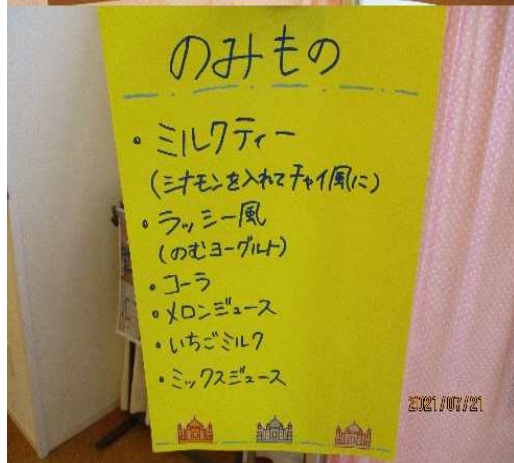 のみもの
・ミルクティー
(シナモンを入れてチャイ風に)
・ラッシー風
(のむヨーグルト)
・コーラ
・メロンジュース
・いちごミルク
・ミックスジュース
2021/07/21